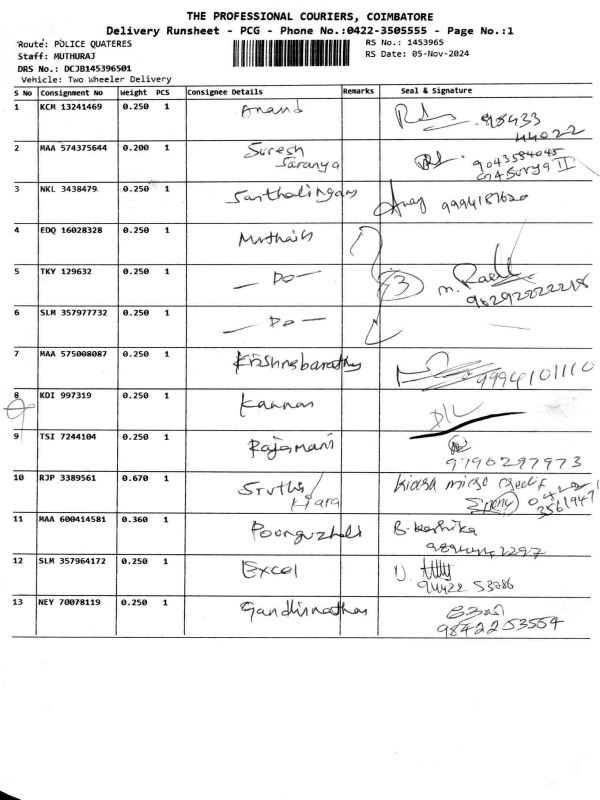 THE PROFESSIONAL COURIERS, COIMBATORE
Delivery Runsheet - PCG - Phone No.:0422-3505555 - Page No.:1
Route: POLICE QUATERES
RS No.: 1453965
Staff: MUTHURAJ
RS Date: 05-Nov-2024
DRS No.: DCJB145396501
Vehicle: Two Wheeler Delivery
S No Consignment No Weight PCS Consignee Details Remarks Seal & Signature
1 KCM 13241469 0.250 1 Anand 98433
44022
2 MAA 574375644 0.200 1 Suresh 9043584045
Saranya G4 Surya II
3 NKL 3438479 0.250 1 Santhalingam 9994187620
4 EDQ 16028328 0.250 1
5 TKY 129632 0.250 1 — Do — 3 m.
98292222218
6 SLM 357977732 0.250 1 — Do —
7 MAA 575008087 0.250 1 Krishnabarathy 9994101110
8 KDI 997319 0.250 1 Kannan D/L
9 TSI 7244104 0.250 1 Rajamani
9790297973
10 RJP 3389561 0.670 1 Sruthi/ Kiara micro credit
Kiara 0422
3561947
11 MAA 600414581 0.360 1 Poonguzhali B. Keshika
12 SLM 357964172 0.250 1 Excel
94422 53086
13 NEY 70078119 0.250 1 Gandhinathan
98422 53554